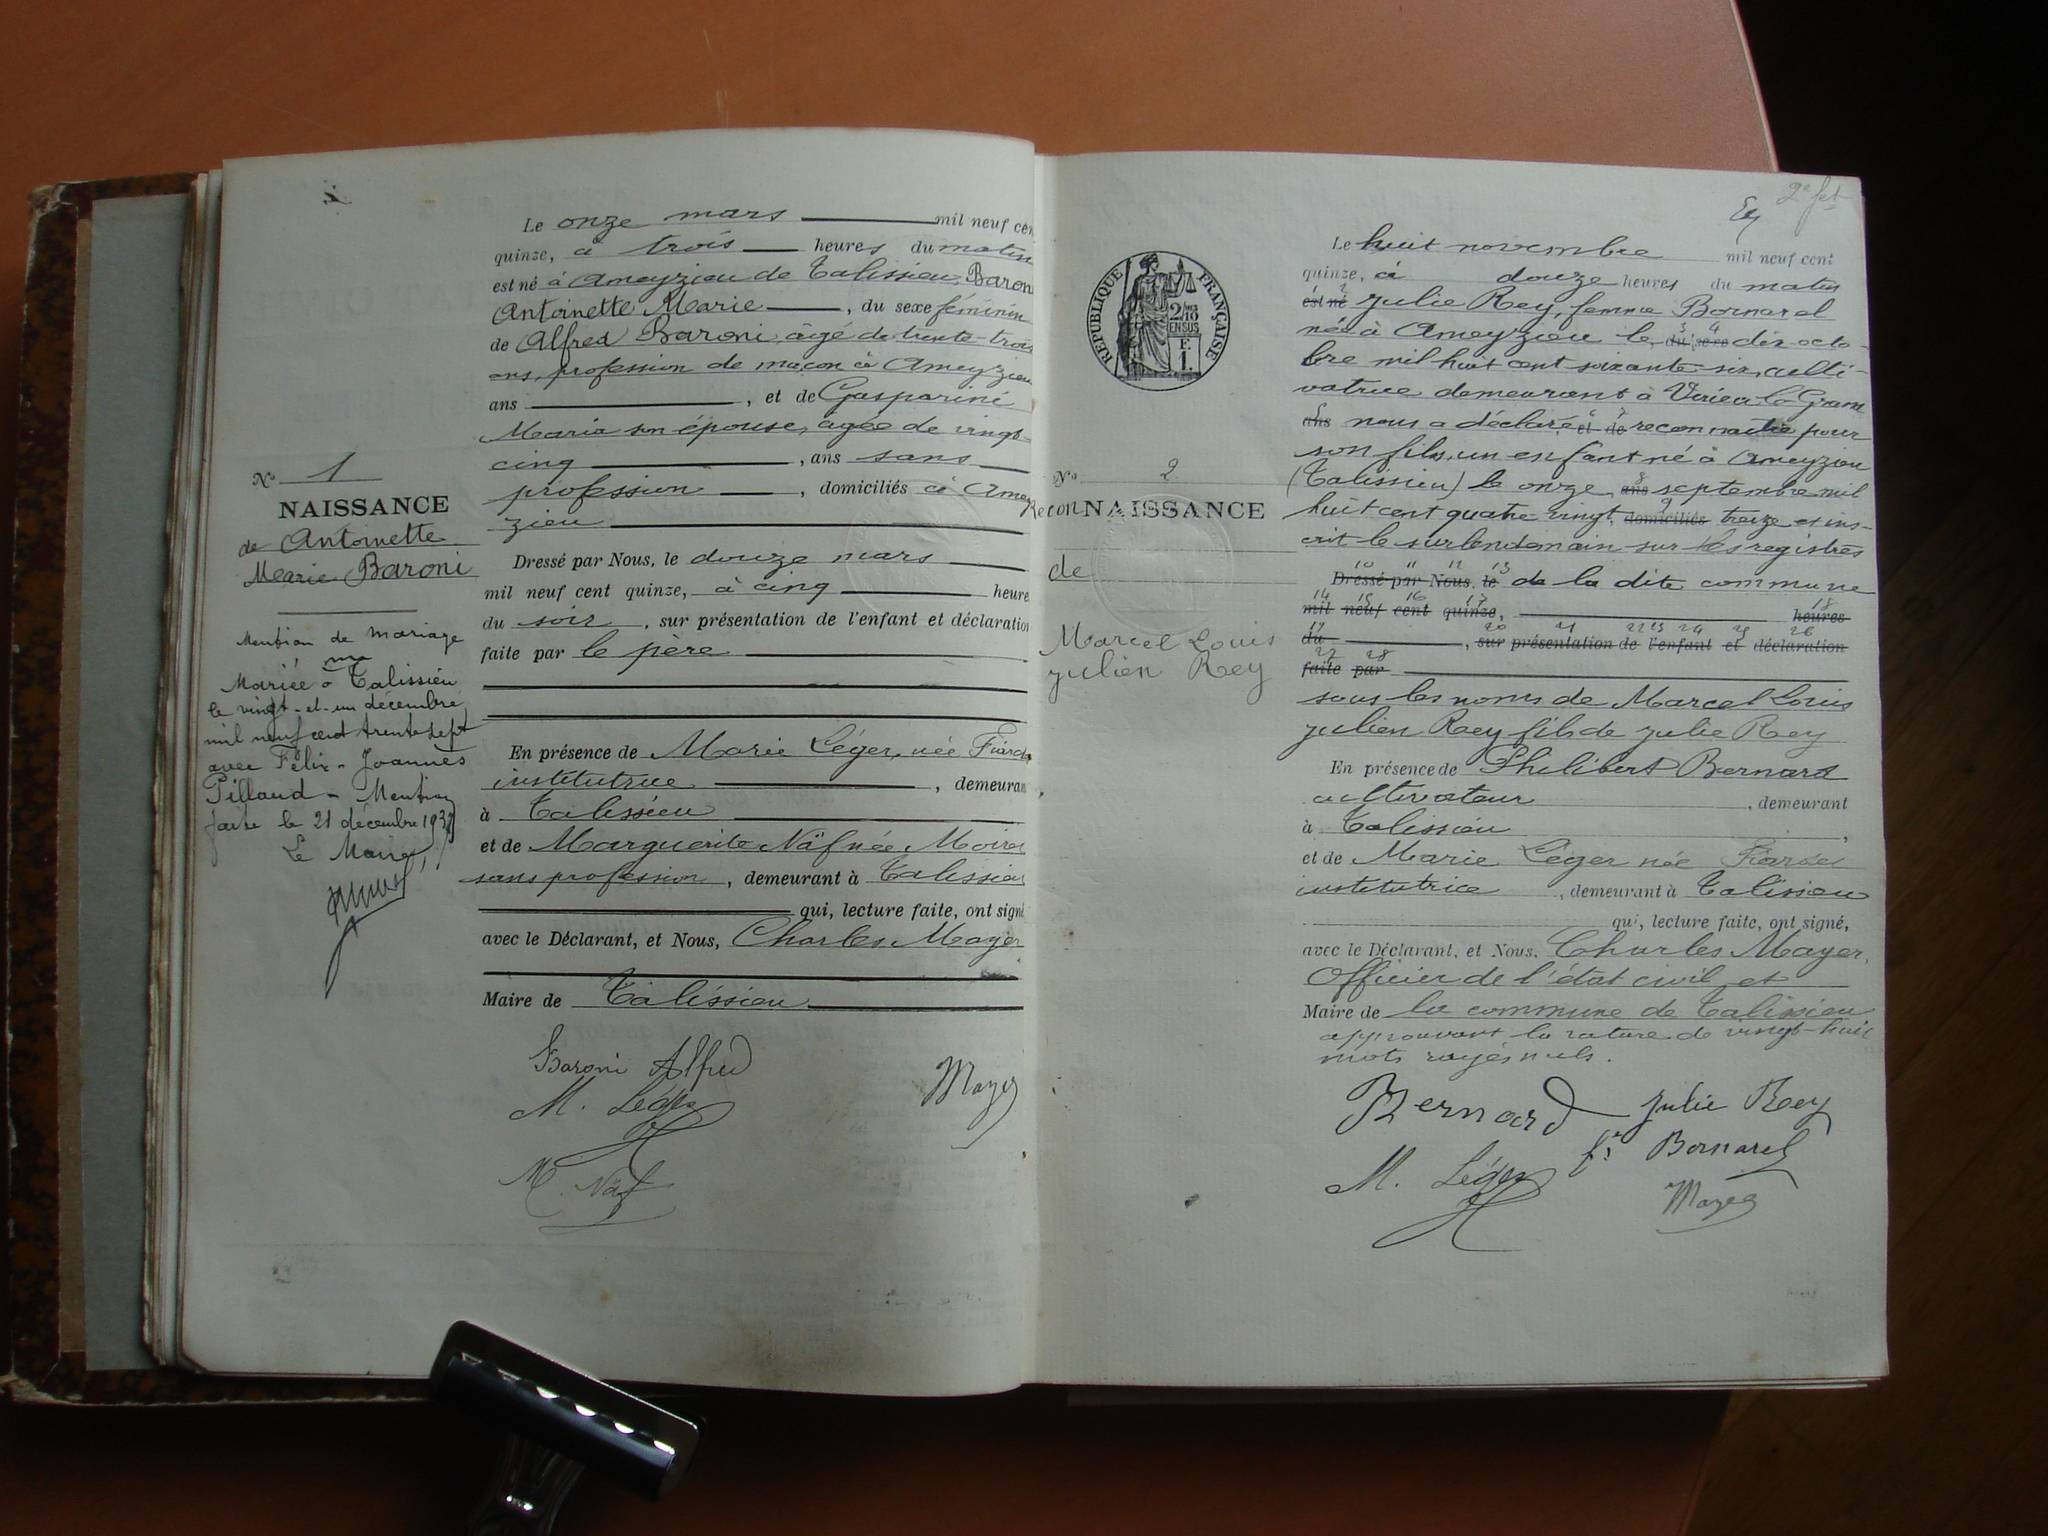 Le onze mars mil neuf cen
quinze, à trois heures du matin
est né à Ameyzieu de Talissieu, Baron
Antoinette Marie, du sexe féminin
de Alfred Baroni, âgé de trente-trois
ans, profession de maçon à Ameyzieu
ans, et de Gasparini
Maria son épouse, agée de vingt-
cinq, ans sans
profession, domiciliés à Amey
zieu
No 1
NAISSANCE
de Antoinette
Marie Baroni
Dressé par Nous, le douze mars
mil neuf cent quinze, à cinq heure
du soir, sur présentation de l'enfant et déclaration
faite par le père
Mention de mariage
Mariée à Talissieu
le vingt-et-un décembre
mil neuf cent trente sept
avec Félix-Joannès
Pilland - Mention
faite le 21 décembre 1937
Le Maire,
En présence de Marie Léger, née
institutrice, demeuran
à Talissieu
et de Marguerite Näf née
sans profession, demeurant à Talissieu
qui, lecture faite, ont signé
avec le Déclarant, et Nous, Charles Mayer
Maire de Talissieu
Baroni Alfred
M. Léger
Mayer
M. Näf
2e fet
RÉPUBLIQUE FRANÇAISE
2/10 EN SUS
F. 1.
Le huit novembre mil neuf cent
quinze, à douze heures du matin
1 2
est né Julie Rey, femme Bornarel
3 4
née à Ameyzieu le du sexe dix octo-
bre mil huit cent soixante six, culti-
vatrice demeurant à Virieu-le-Grand
5 6 7
ans nous a déclaré et de reconnaitre pour
son fils, un enfant né à Ameyzieu
8
(Talissieu) le onze ans septembre mil
9
huit cent quatre vingt domiciliés treize et ins-
crit le surlendemain sur les registres
No 2
ReconNAISSANCE
de
Marcel Louis
Julien Rey
10 11 12 13
Dressé par Nous, le de la dite commune
14 15 16 17 18
mil neuf cent quinze, heures
19 20 21 22 23 24 25 26
du, sur présentation de l'enfant et déclaration
27 28
faite par
sous les noms de Marcel Louis
Julien Rey fils de Julie Rey
En présence de Philibert Bernard
cultivateur, demeurant
à Talissieu
et de Marie Léger née
institutrice, demeurant à Talissieu
qui, lecture faite, ont signé,
avec le Déclarant, et Nous, Charles Mayer,
Officier de l'état civil et
Maire de la commune de Talissieu
approuvant la rature de vingt-huit
mots rayés nuls.
Bernard Julie Rey
fe Bornarel
M. Léger
Mayer